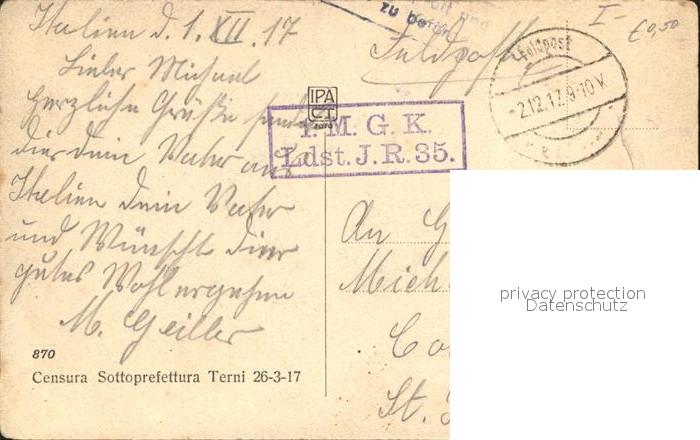 Italien d. 1. XII. 17
Lieber Michael
Herzliche Grüße sendet
dir dein Vater aus
Italien dein Vater
und Wünscht dier
gutes Wohlergehen
M. Geiller
870
Censura Sottoprefettura Terni 26-3-17
zu
Feldpost
I-
€9,50
Feldpost
-2.12.17.9-10 V
IPA
CT
1. M. G. K.
Ldst. J. R. 35.
An
Mich
St.
privacy protection
Datenschutz